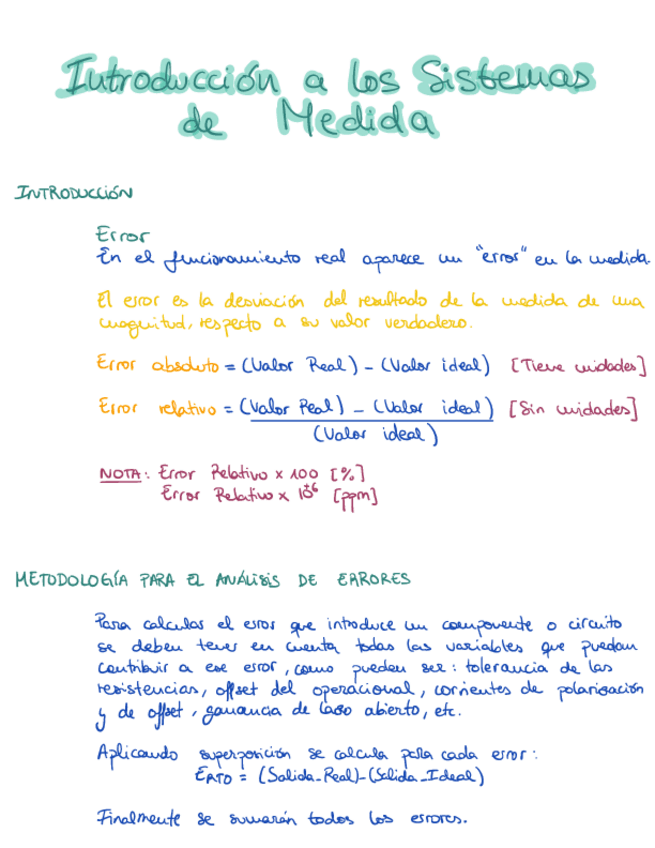 Introducción a los Sistemas
de Medida
INTRODUCCIÓN
Error
En el funcionamiento real aparece un "error" en la medida.
El error es la desviación del resultado de la medida de una
magnitud, respecto a su valor verdadero.
Error absoluto = (Valor Real) - (Valor ideal) [Tiene unidades]
Error relativo = (Valor Real) - (Valor ideal) [Sin unidades]
(Valor ideal)
NOTA: Error Relativo x 100 [%]
Error Relativo x 10⁺⁶ [ppm]
METODOLOGÍA PARA EL ANÁLISIS DE ERRORES
Para calcular el error que introduce un componente o circuito
se deben tener en cuenta todas las variables que puedan
contribuir a ese error, como pueden ser: tolerancia de las
resistencias, offset del operacional, corrientes de polarización
y de offset, ganancia de lazo abierto, etc.
Aplicando superposición se calcula para cada error:
ERTO = (Salida_Real)-(Salida_Ideal)
Finalmente se sumarán todos los errores.